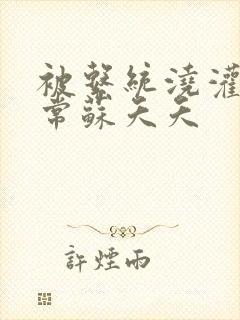 被繫統澆灌
常蘇天天
許煙雨